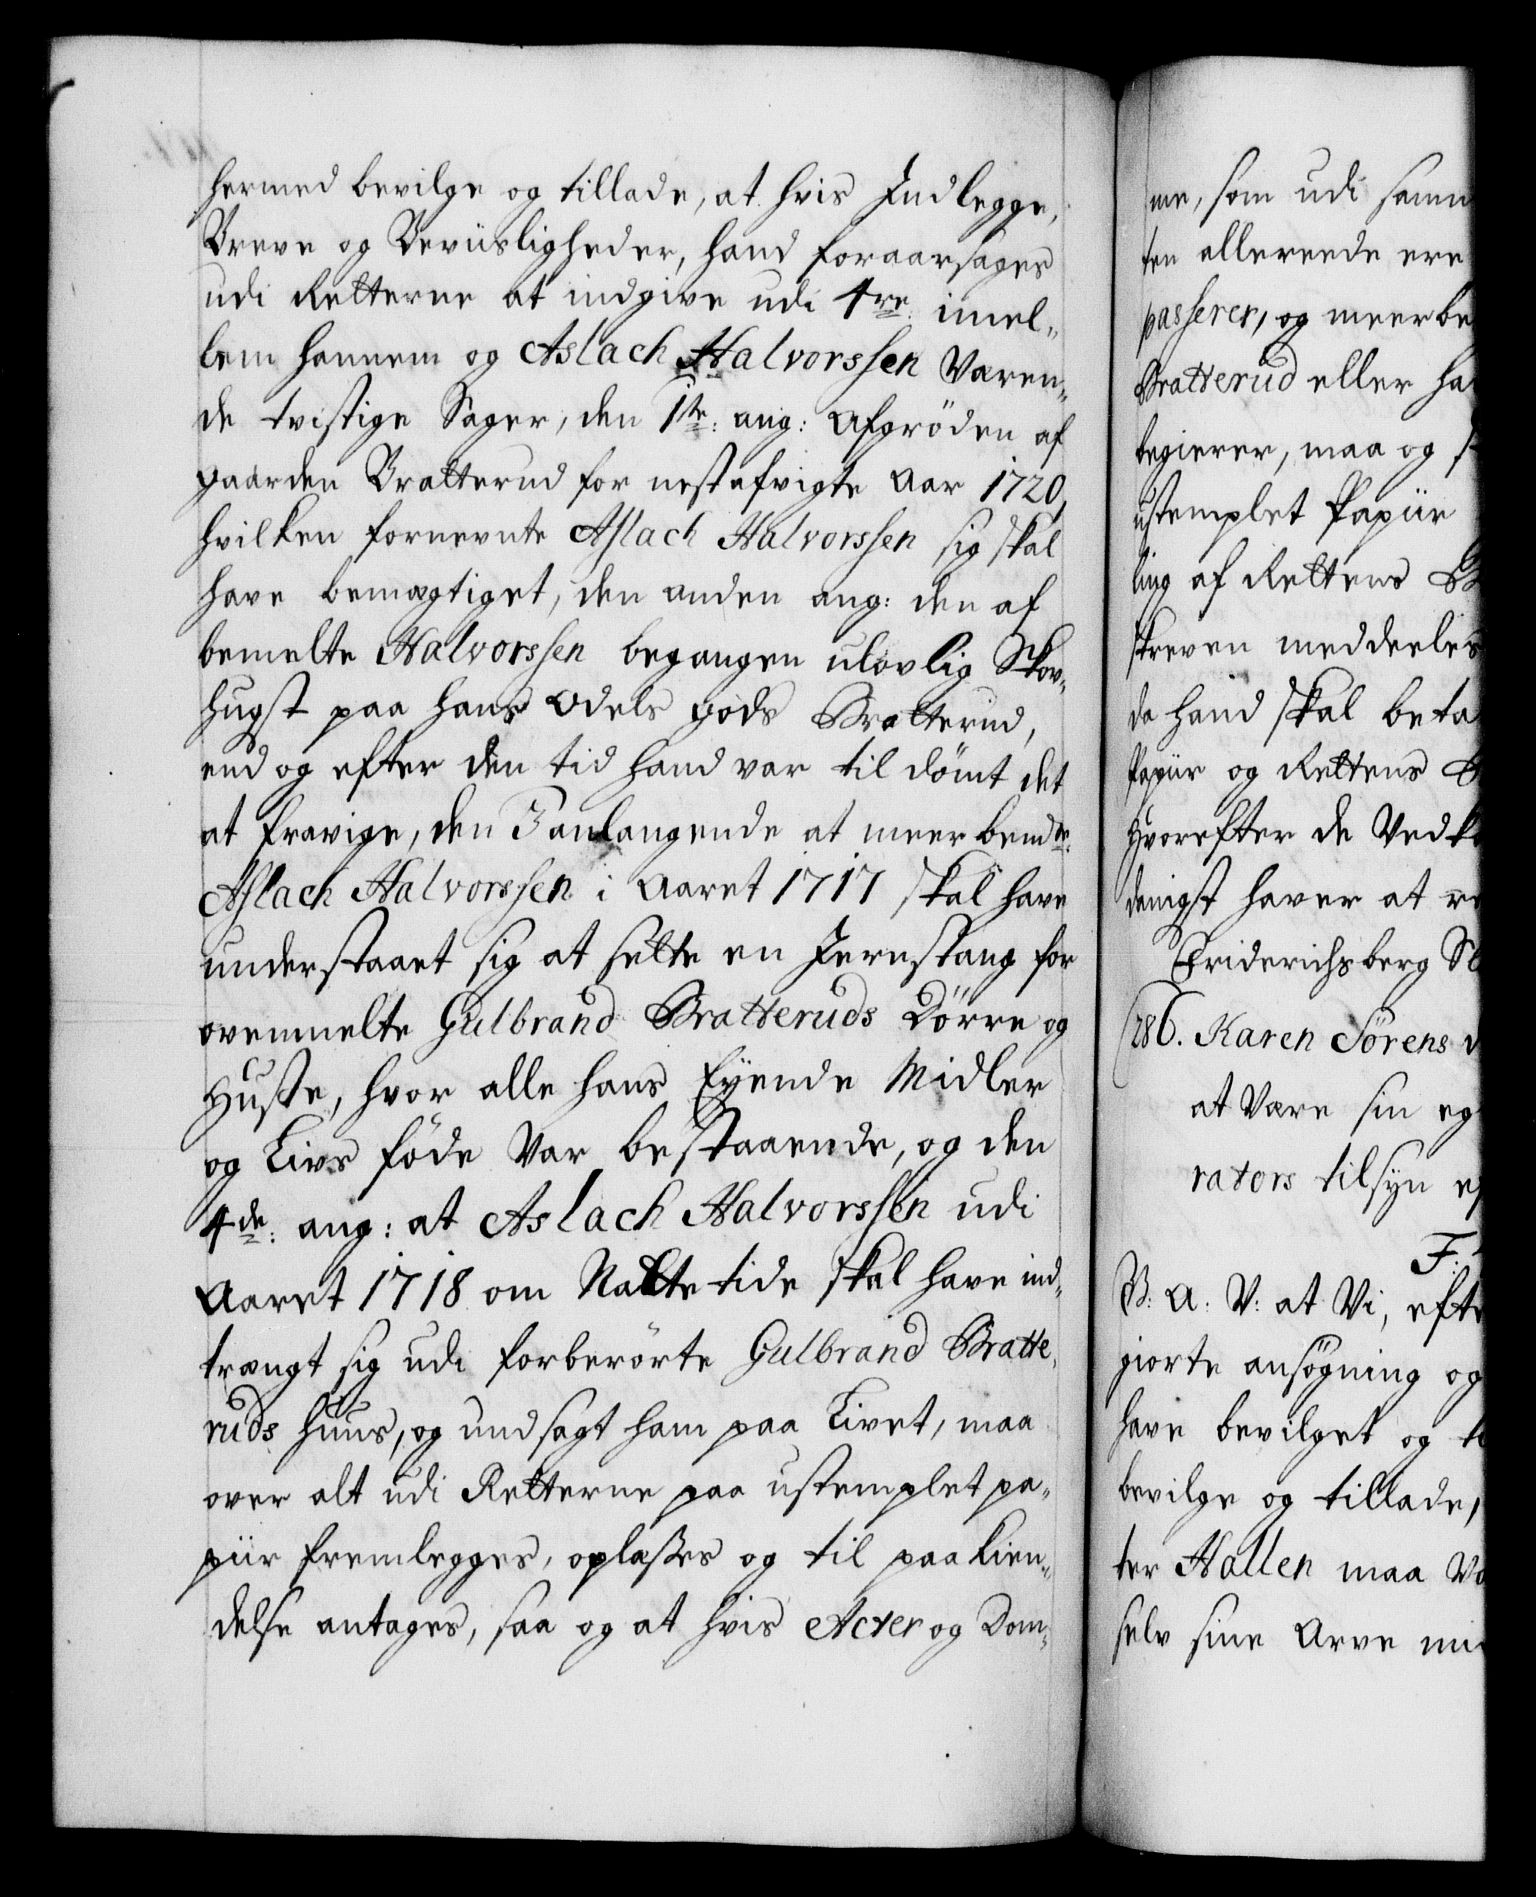 hermed bevilge og tillade, at hvis Indlegge,
Breve og Beviisligheder, hand foraarsages
udi Retterne at indgive udi 4re: imel-
lem hannem og Aslach Halvorssen Væren-
de tvistige Sager, den 1te: ang: Afgröden af
gaarden Bratterud for nestafvigte Aar 1720,
hvilken fornevnte Aslach Halvorssen sig skal
have bemægtiget, den anden ang: den af
bemelte Halvorssen begangen ulovlig Skov-
hugst paa hans Odels gods Bratterud,
end og efter den tid hand var til dömt det
at fravige, den 3 anlangende at meerbemte:
Aslach Halvorssen i Aaret 1717 skal have
understaaet sig at sette en Jernstang for
ovenmelte Gulbrand Bratteruds Dörre og
Huuse, hvor alle hans Eÿende Midler
og Livs föde var bestaaende, og den
4de: ang: at Aslach Halvorssen udi
Aaret 1718 om Natte tide skal have ind-
trængt sig udi forberörte Gulbrand Bratte-
ruds huus, og undsagt ham paa Livet, maa
over alt udi Retterne paa ustemplet pa-
piir fremlegges, oplæses og til paakien-
delse antages, saa og at hvis Acter og Dom-
me, som udi samm
ten allereede ere
passerer, og meerbe
Bratterud eller ha
begierer, maa og s
ustemplet Papiir
ling af Rettens
skreven meddeeles
da hand skal beta
Papiir og Rettens
Hvorefter de Vedk
danigst haver at re
Friderichsberg Sl
286. Karen Sörens d
at være sin eg
rators tilsyn ef
F:
V: A: V: at Vi, efte
giorte ansögning og
have bevilget og t
bevilge og tillade,
ter Hallen maa væ
selv sine Arve mi